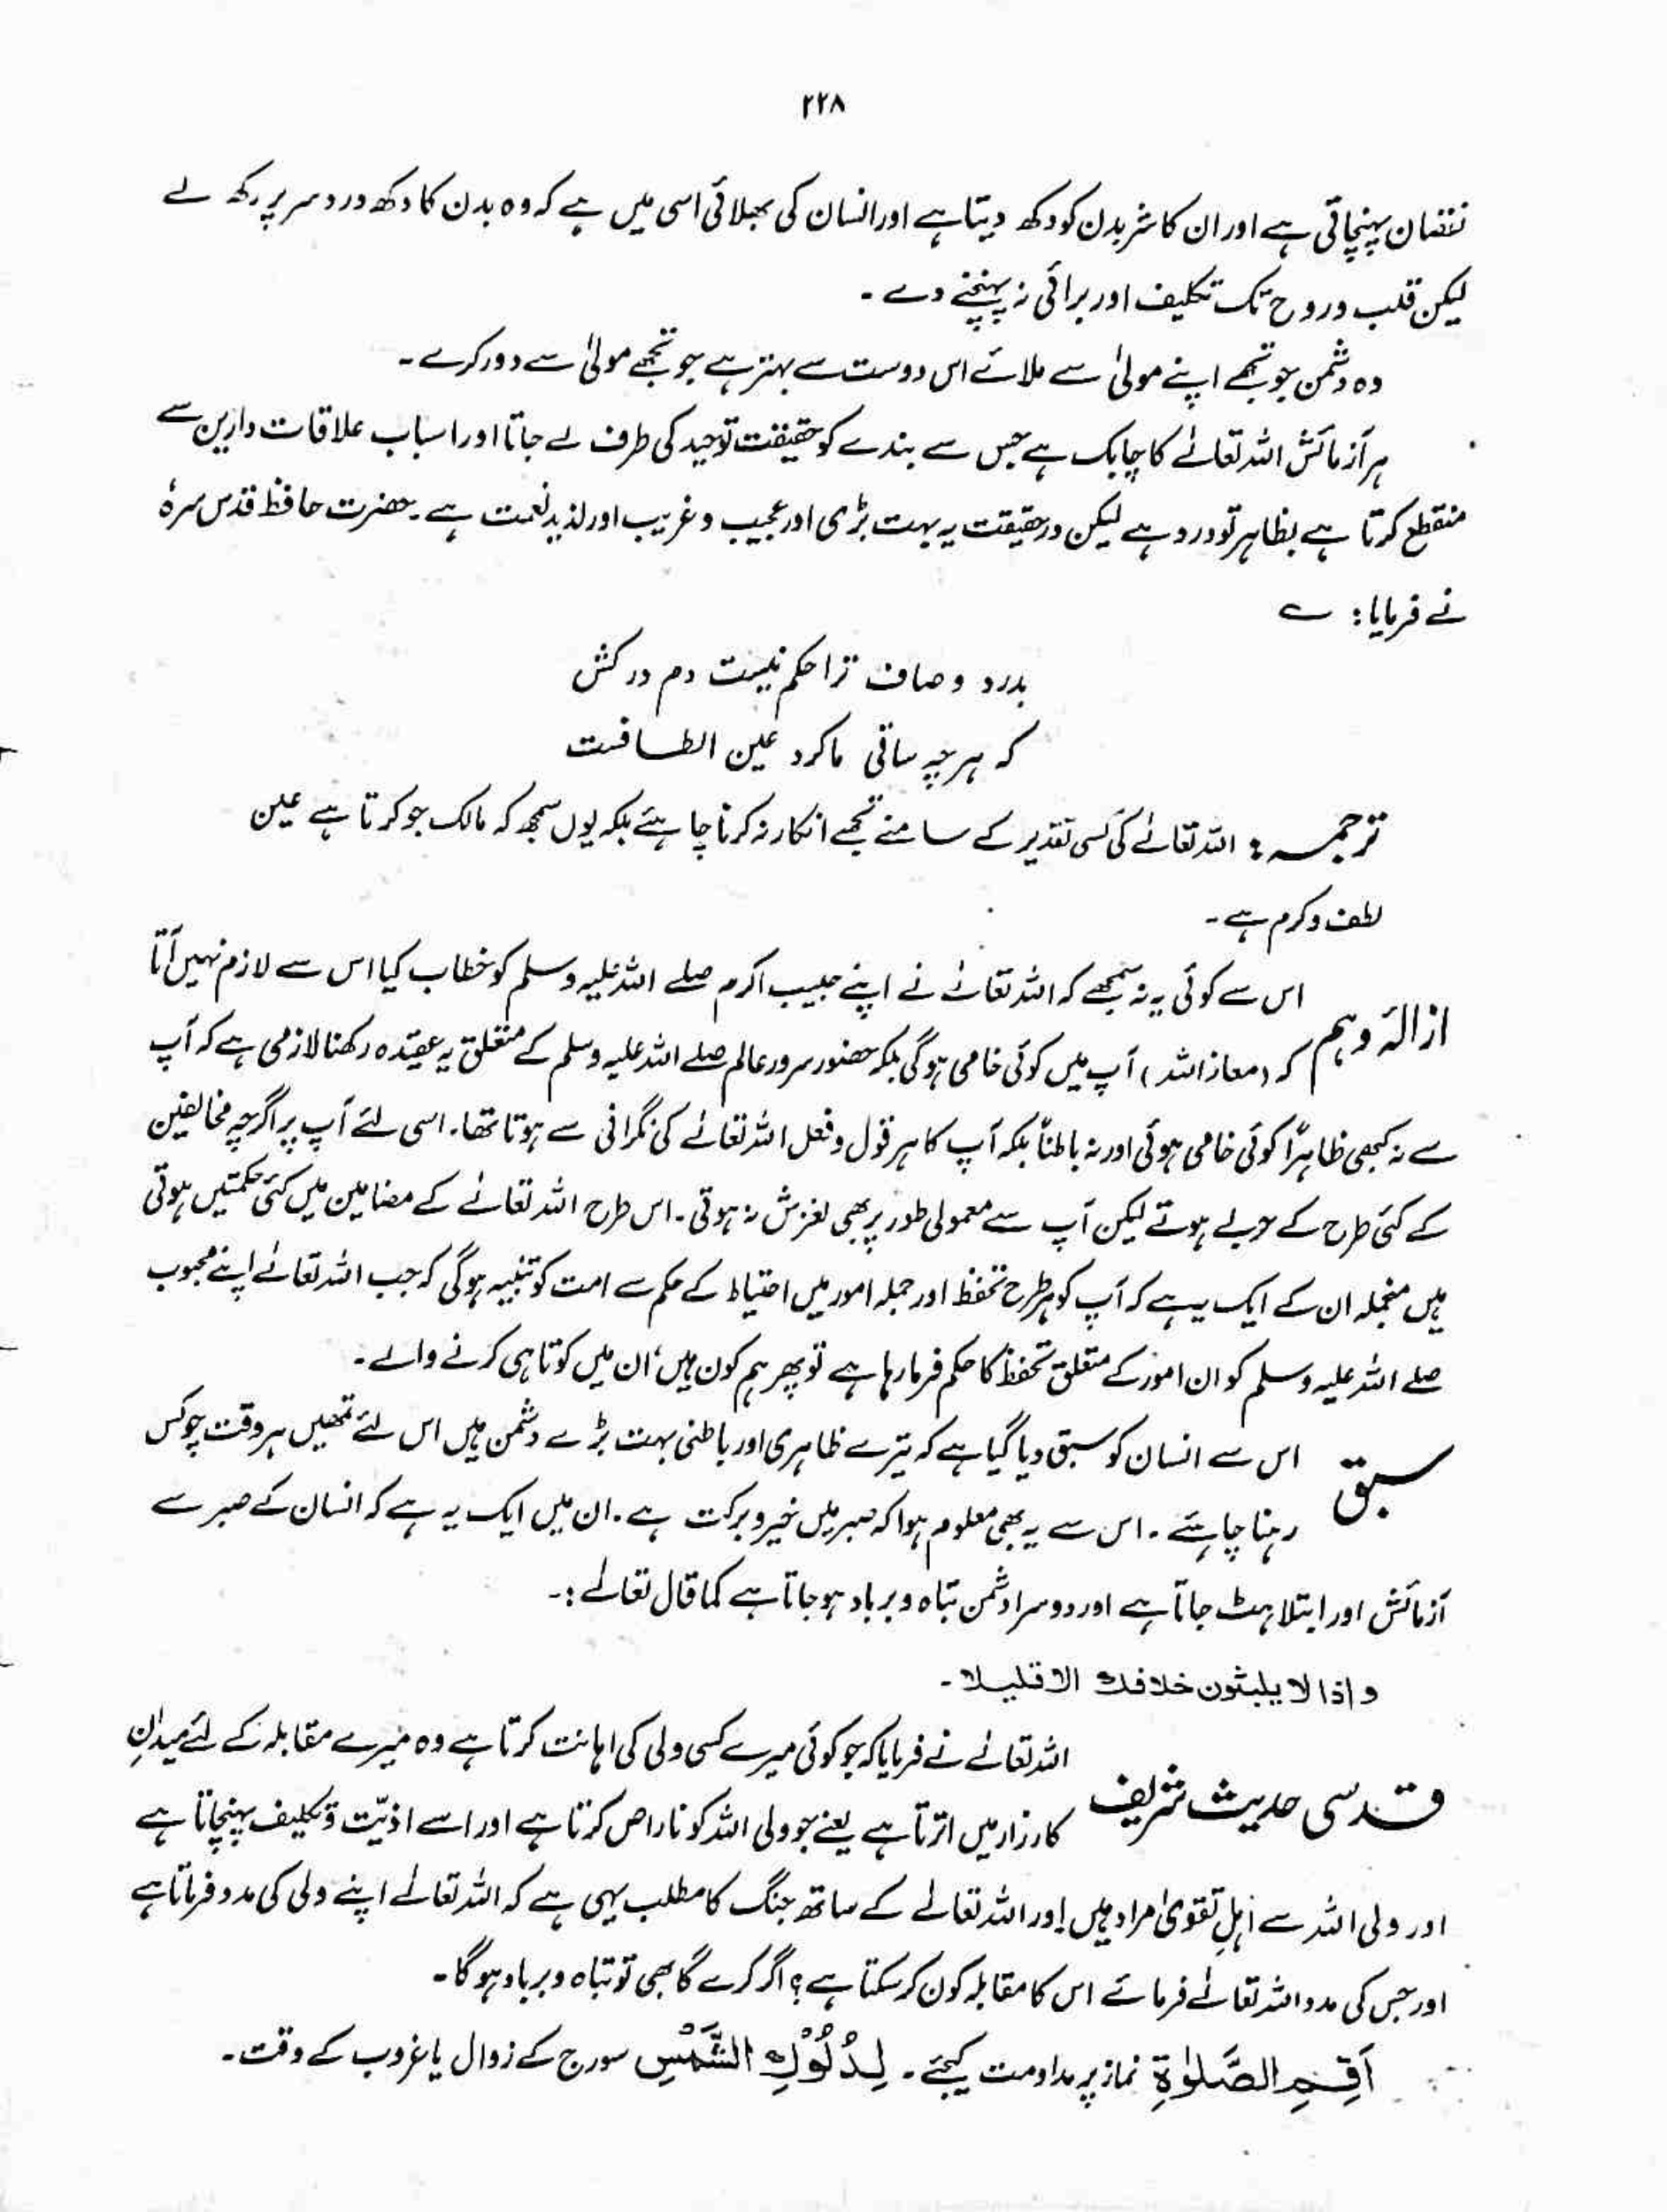 ۲۲۸
نقصان پہنچاتی ہے اور ان کا شر بدن کو دکھ دیتا ہے اور انسان کی بھلائی اسی میں ہے کہ وہ بدن کا دکھ درد سر پر رکھ لے
لیکن قلب و روح تک تکلیف اور برائی نہ پہنچنے دے ۔
وہ دشمن جو تجھے اپنے مولیٰ سے ملائے اس دوست سے بہتر ہے جو تجھے مولیٰ سے دور کرے ۔
ہر آزمائش اللہ تعالےٰ کا چابک ہے جس سے بندے کو حقیقت توحید کی طرف لے جاتا اور اسباب علاقات دارین سے
منقطع کرتا ہے بظاہر تو درد ہے لیکن درحقیقت یہ بہت بڑی اور عجیب و غریب اور لذیذ نعمت ہے ۔ حضرت حافظ قدس سرہٗ
نے فرمایا : ے
بدرد و صاف ترا حکم نیست دم درکش
کہ ہرچہ ساقی ماکرد عین الطافست
ترجمہ : اللہ تعالےٰ کی کسی تقدیر کے سامنے تجھے انکار نہ کرنا چاہئے بلکہ یوں سمجھ کہ مالک جو کرتا ہے عین
لطف و کرم ہے ۔
ازالۂ وہم اس سے کوئی یہ نہ سمجھے کہ اللہ تعالےٰ نے اپنے حبیب اکرم صلے اللہ علیہ وسلم کو خطاب کیا اس سے لازم نہیں آتا
کہ (معاذ اللہ) آپ میں کوئی خامی ہوگی بلکہ حضور سرور عالم صلے اللہ علیہ وسلم کے متعلق یہ عقیدہ رکھنا لازمی ہے کہ آپ
سے نہ کبھی ظاہراً کوئی خامی ہوئی اور نہ باطناً بلکہ آپ کا ہر قول و فعل اللہ تعالےٰ کی نگرانی سے ہوتا تھا ۔ اسی لئے آپ پر اگرچہ مخالفین
کے کئی طرح کے حربے ہوتے لیکن آپ سے معمولی طور پر بھی لغزش نہ ہوتی ۔ اس طرح اللہ تعالےٰ کے مضامین میں کئی حکمتیں ہوتی
ہیں منجملہ ان کے ایک یہ ہے کہ آپ کو ہر طرح تحفظ اور جملہ امور میں احتیاط کے حکم سے امت کو تنبیہ ہوگی کہ جب اللہ تعالےٰ اپنے محبوب
صلے اللہ علیہ وسلم کو ان امور کے متعلق تحفظ کا حکم فرما رہا ہے تو پھر ہم کون ہیں، ان میں کوتاہی کرنے والے ۔
سبق اس سے انسان کو سبق دیا گیا ہے کہ تیرے ظاہری اور باطنی بہت بڑے دشمن ہیں اس لئے تمھیں ہر وقت چوکس
رہنا چاہئے ۔ اس سے یہ بھی معلوم ہوا کہ صبر میں خیر و برکت ہے ۔ ان میں ایک یہ ہے کہ انسان کے صبر سے
آزمائش اور ابتلا ہٹ جاتا ہے اور دوسرا دشمن تباہ و برباد ہو جاتا ہے کما قال تعالےٰ :۔
و اذا لا یلبثون خلافك الا قلیلا ۔
قدسی حدیث شریف اللہ تعالےٰ نے فرمایا کہ جو کوئی میرے کسی ولی کی اہانت کرتا ہے وہ میرے مقابلہ کے لئے میدانِ
کارزار میں اترتا ہے یعنے جو ولی اللہ کو ناراض کرتا ہے اور اسے اذیّت و تکلیف پہنچاتا ہے
اور ولی اللہ سے اہلِ تقویٰ مراد ہیں اور اللہ تعالےٰ کے ساتھ جنگ کا مطلب یہی ہے کہ اللہ تعالےٰ اپنے ولی کی مدد فرماتا ہے
اور جس کی مدد اللہ تعالےٰ فرمائے اس کا مقابلہ کون کرسکتا ہے ؟ اگر کرے گا بھی تو تباہ و برباد ہوگا ۔
اَقِمِ الصَّلٰوةِ نماز پر مداومت کیجئے ۔ لِدُلُوْكِ الشَّمْسِ سورج کے زوال یا غروب کے وقت ۔